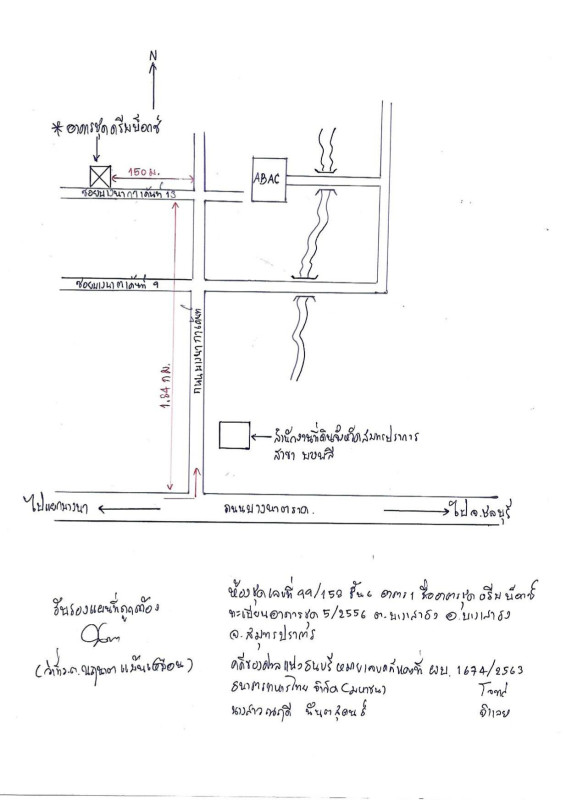 N
* อาคารชุด ดรีม บ็อกซ์
150 ม.
ABAC
ซอยบางนาการ์เด้นท์ 13
ซอยบางนาการ์เด้นที่ 9
ถนนบางนาการ์เด้นท์
1.84 กม.
สำนักงานที่ดินจังหวัดสมุทรปราการ
สาขา บางพลี
ไปแยกบางนา
ถนนบางนาตราด
ไป จ.ชลบุรี
ห้องชุดเลขที่ 99/152 ชั้น 6 อาคาร 1 ชื่ออาคารชุด ดรีม บ็อกซ์
ทะเบียนอาคารชุด 5/2556 ต.บางเสาธง อ.บางเสาธง
จ.สมุทรปราการ
รับรองแผนที่ถูกต้อง
คดีของศาลแพ่งธนบุรี หมายเลขคดีแดงที่ ผบ. 1674/2563
ธนาคารทหารไทย จำกัด (มหาชน) โจทก์
นางสาว จำเลย